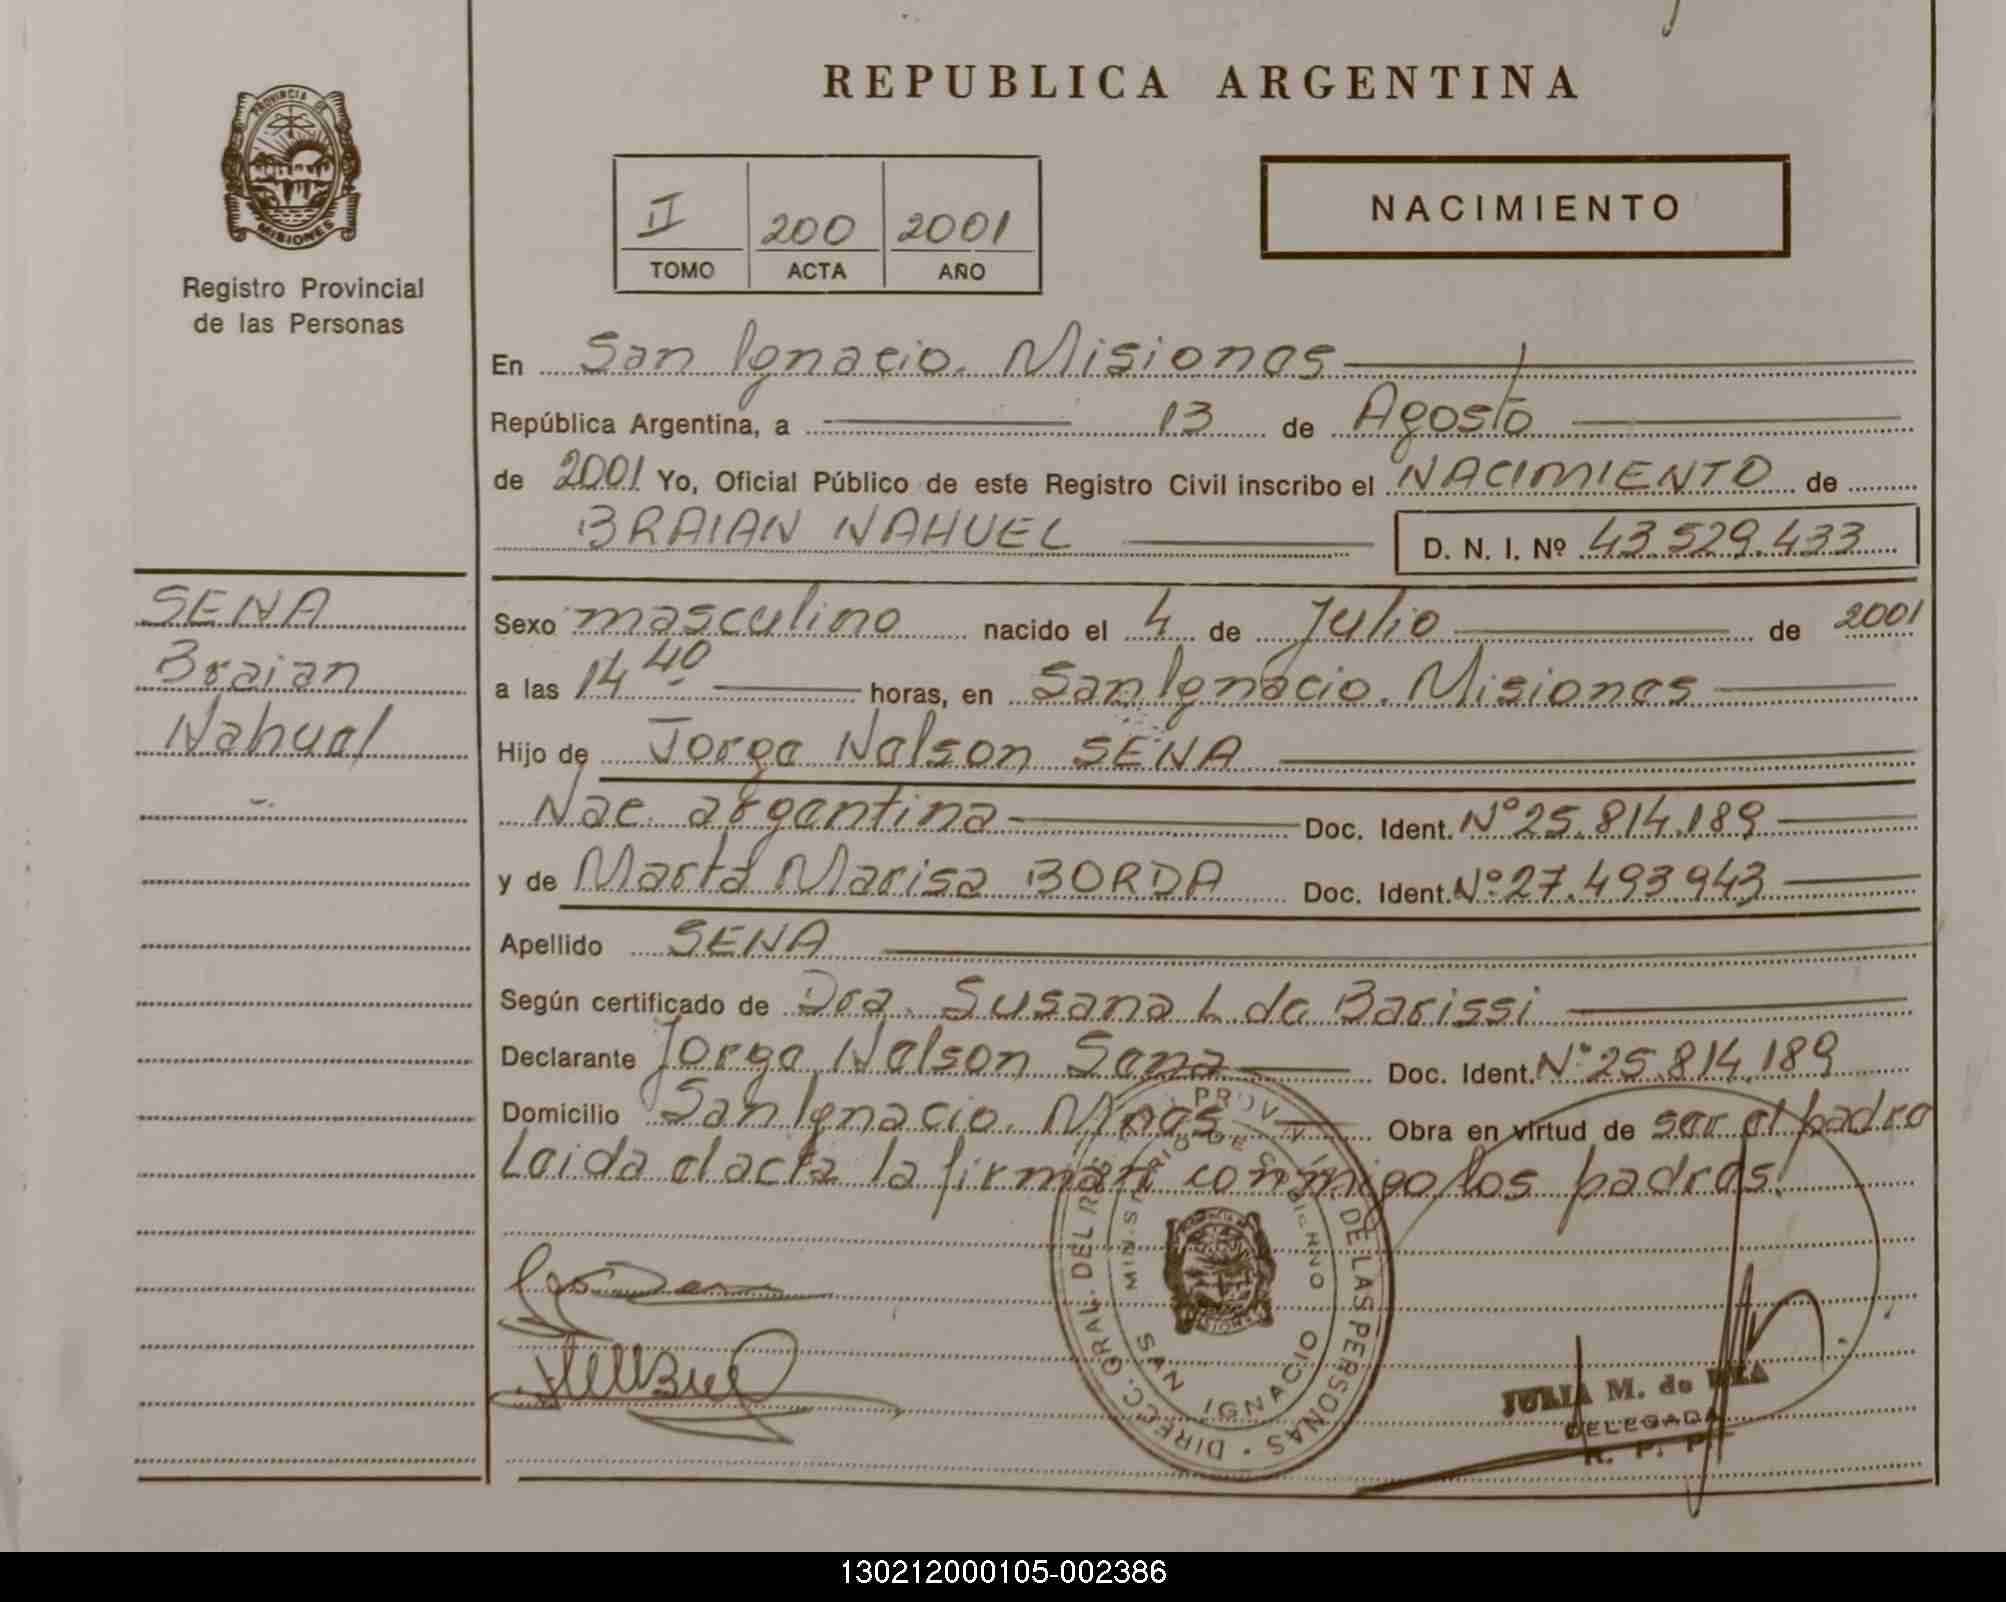 REPUBLICA ARGENTINA
PROVINCIA DE
MISIONES
Registro Provincial
de las Personas
II 200 2001
TOMO ACTA AÑO
NACIMIENTO
En San Ignacio. Misiones
República Argentina, a 13 de Agosto
de 2001 Yo, Oficial Público de este Registro Civil inscribo el NACIMIENTO de
BRAIAN NAHUEL D. N. I. Nº 43.529.433
SENA
Braian
Nahuel
Sexo masculino nacido el 4 de Julio de 2001
a las 14 40 horas, en San Ignacio. Misiones
Hijo de Jorge Nelson SENA
Nac. argentina Doc. Ident. Nº 25.814.189
y de Marta Marisa BORDA Doc. Ident. Nº 27.493.943
Apellido SENA
Según certificado de Dra. Susana L de Barissi
Declarante Jorge Nelson Sena Doc. Ident. Nº 25.814.189
Domicilio San Ignacio. Mnes Obra en virtud de ser el padre
Leida el acta la firman conmigo los padres.
DIRECC. GRAL. DEL REG. PROV. DE LAS PERSONAS
MINISTERIO DE GOBIERNO
SAN IGNACIO
JULIA M. de
DELEGADA
R. P. P.
130212000105-002386